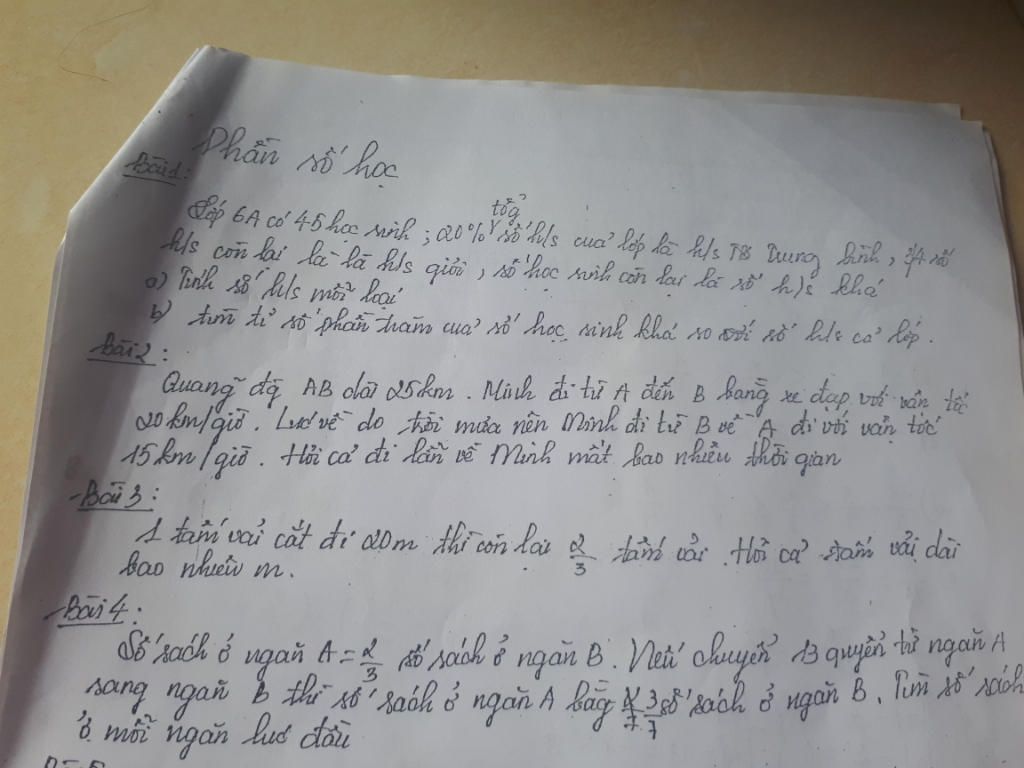 Phần số học
Bài 1:
Lớp 6A có 45 học sinh; 20% tổg số h/s cuả lớp là h/s TB trung bình, số
h/s còn lại là là h/s giỏi, số học sinh còn lại là số h/s khá
a) Tính số h/s mỗi loại
b) tìm tỉ số phần trăm cuả số học sinh khá so với số h/s cả lớp.
Bài 2:
Quãng đg AB dài 25km. Minh đi từ A đến B bằng xe đạp với vận tốc
20km/giờ. Lươ về do trời mưa nên Minh đi từ B về A đi với vận tốc
15km/giờ. Hỏi cả đi lẫn về Minh mất bao nhiêu thời gian
Bài 3:
1 tấm vải cắt đi 20m thì còn lại 2/3 tấm vải. Hỏi cả tấm vải dài
bao nhiêu m.
Bài 4:
Số sách ở ngăn A = 2/3 số sách ở ngăn B. Nếu chuyển 3 quyển từ ngăn A
sang ngăn B thì số sách ở ngăn A bằg 3/7 số sách ở ngăn B. Tìm số sách
ở mỗi ngăn lươ đầu